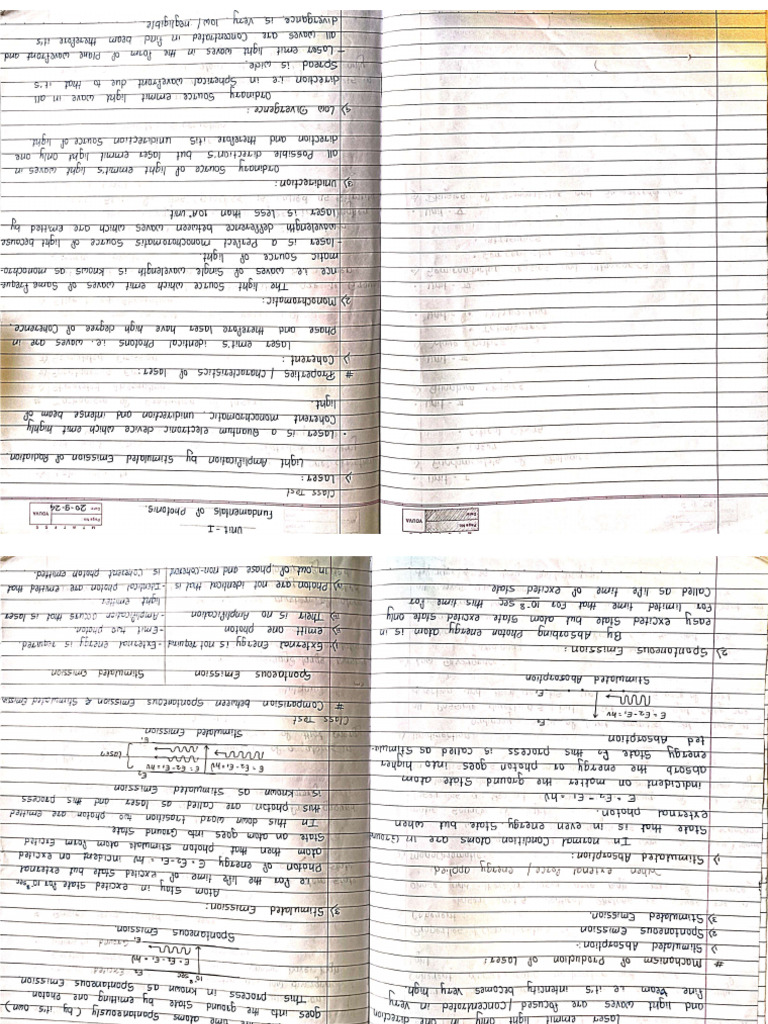 Unit - I
Fundamentals of Photonis.
Page No.
Date 20-9-24
YOUVA
Class Test
1) Laser :
Light Amplification by Stimulated Emission of Radiation.
• Laser is a Quantum electronic device which emit highly
Coherent monochromatic, unidirection and intense beam of
light.
# Properties / characteristics of laser :
1) Coherent :
laser emit's identical Photons i.e. waves are in
Phase and therefore laser have high degree of Coherence.
2) Monochromatic :
The light Source which emit waves of Same Freque-
nce i.e. waves of Single wavelength is known as monochro-
matic Source of light.
- laser is a Perfect monochromatis Source of light because
wavelength difference between waves which are emitted by
laser is less than
3) Unidirection :
Ordinary Source of light emmit's light waves in
all Possible direction's but laser emmit light only one
direction and therefore it's unidirection Source of light
5) Low Divergence :
Ordinary Source emmit light wave in all
direction i.e in Spherical wavefront due to that it's
Spread is wide.
- Laser emit light waves in the form of Plane wavefront and
all waves are Concentrated in find beam therefore it's
divergance is very low / negligible
Page No.
Date
YOUVA
laser emmit light only in one direction
and light waves are focused / Concentrated in very
Fine beam i.e. it's intencity becomes very high
# Mechanism of Production of laser :
1) Stimulated Absorption :
2) Spontaneous Emission
3) Stimulated Emission.
When external Force / energy applied
1) Stimulated Absorption :
In normal Condition atoms are in Ground
State that is in even energy State but when
external photon.
E = E2 - E1 = hν
indicident on matter the ground State atom
absorb the energy or photon goes into higher
energy State E2 this process is called as Stimula-
ted Absorption
E2
E = E2-E1 = hν
E1
Stimulated Absorption
2) Spontaneous Emission :
By Absorbing Photon energy atom is in
easy excited State but atom State excited State only
For limited time that For 10-8 sec this time For
Called as life time of excited State
time atoms Spontaneously (by it's own)
goes into the ground State by emitting one photon
This process in known as Spontaneous Emission
10-8 sec E2 Excited
E = E2 - E1 = hν
E1 Ground
Spontaneous Emission
3) Stimulated Emission :
Atom Stay in excited State For 10-8 sec
For the life time of excited State but external
Photon of energy E = E2 - E1 = hν incident on excited
atom then that photon stimulate atom Form Excited
State an atom goes into Ground State
In this down word trasition two photon are emitted
this photon are called as laser and this process
is known as Stimulated Emission
E2
E = E2-E1 = hν
E = E2-E1 = hν
Laser
E1
Stimulated Emission
Class Test
# Comparision between Spontaneous Emission & Stimulated Emissio
Spontaneous Emission Stimulated Emission
1) External Energy is not requird - External energy is required
2) emitt one photon - Emit two photon.
3) Their is no Amplification - Amplification occurs that is laser
light emitter
4) Photon are not identical that is - Identical photon are emitted that
in out of phase and non-coherent is Coherent photon emitted.